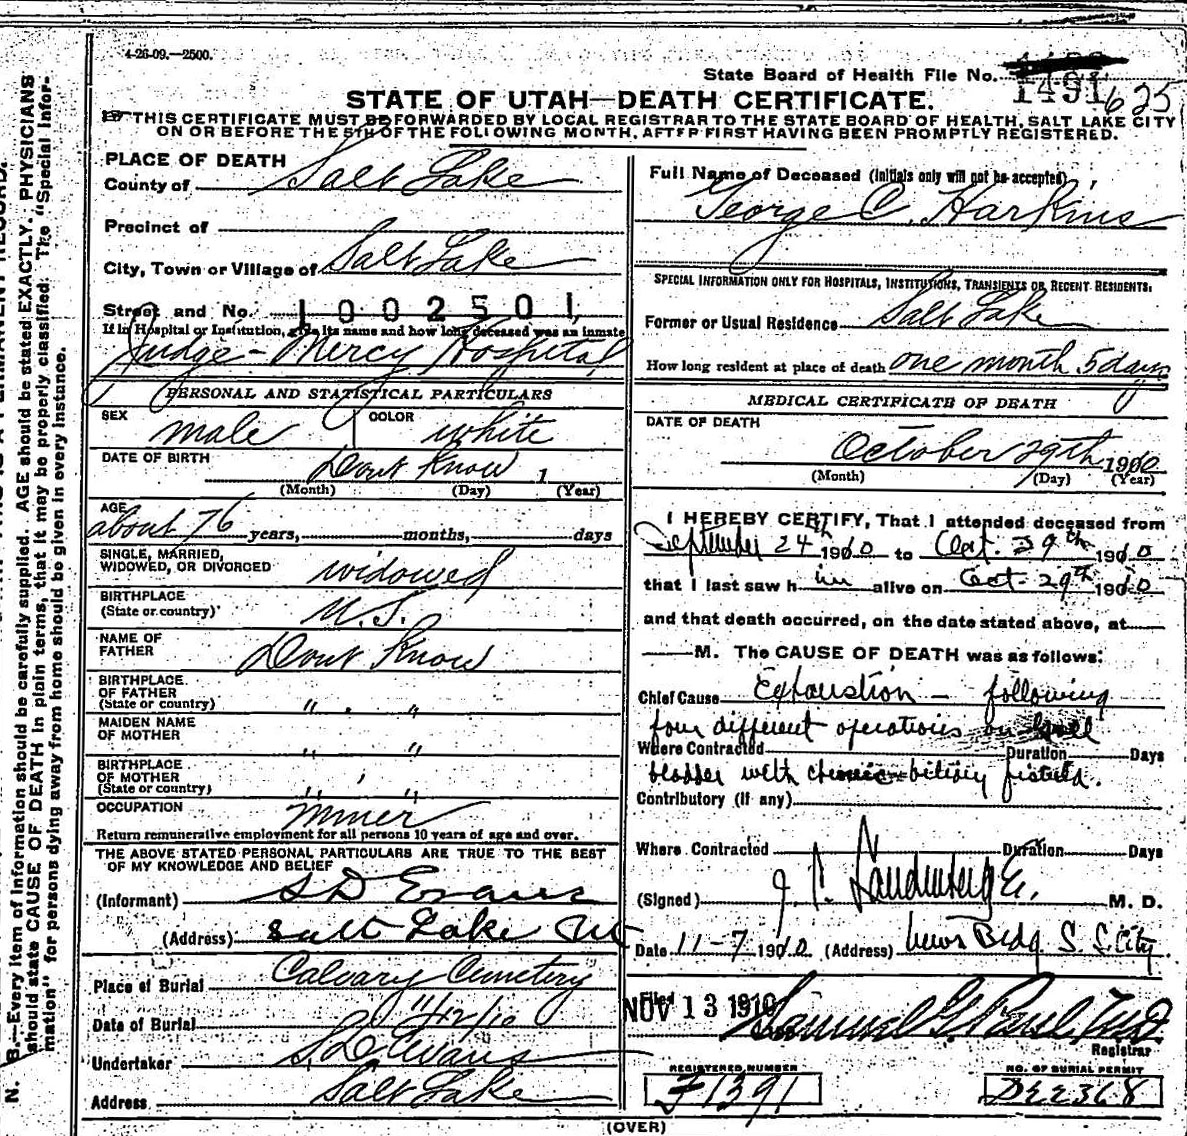 4-26-09.—2500.
State Board of Health File No. 1491 625
STATE OF UTAH—DEATH CERTIFICATE.
THIS CERTIFICATE MUST BE FORWARDED BY LOCAL REGISTRAR TO THE STATE BOARD OF HEALTH, SALT LAKE CITY
ON OR BEFORE THE 5TH OF THE FOLLOWING MONTH, AFTER FIRST HAVING BEEN PROMPTLY REGISTERED.
PLACE OF DEATH
County of Salt Lake
Precinct of
City, Town or Village of Salt Lake
Street and No. 1002501
If in Hospital or Institution, give its name and how long deceased was an inmate
Judge-Mercy Hospital
PERSONAL AND STATISTICAL PARTICULARS
SEX male COLOR white
DATE OF BIRTH Dont Know 1
(Month) (Day) (Year)
AGE
about 76 years, months, days
SINGLE, MARRIED,
WIDOWED, OR DIVORCED widowed
BIRTHPLACE
(State or country) U.S.
NAME OF
FATHER Dont Know
BIRTHPLACE
OF FATHER
(State or country) " "
MAIDEN NAME
OF MOTHER " "
BIRTHPLACE
OF MOTHER
(State or country) " "
OCCUPATION Miner
Return remunerative employment for all persons 10 years of age and over.
THE ABOVE STATED PERSONAL PARTICULARS ARE TRUE TO THE BEST
OF MY KNOWLEDGE AND BELIEF
(Informant) S D Evans
(Address) Salt Lake Ut
Place of Burial Calvary Cemetery
Date of Burial 11/12/10
Undertaker S.D. Evans
Address Salt Lake
Full Name of Deceased (initials only will not be accepted)
George C. Harkins
SPECIAL INFORMATION ONLY FOR HOSPITALS, INSTITUTIONS, TRANSIENTS OR RECENT RESIDENTS:
Former or Usual Residence Salt Lake
How long resident at place of death one month 5 days
MEDICAL CERTIFICATE OF DEATH
DATE OF DEATH
October 29th 1910
(Month) (Day) (Year)
I HEREBY CERTIFY, That I attended deceased from
September 24th 1910 to Oct. 29th 1910
that I last saw h im alive on Oct. 29th 1910
and that death occurred, on the date stated above, at
M. The CAUSE OF DEATH was as follows:
Chief Cause Exhaustion — following
four different operations on gall
Where Contracted Duration Days
bladder with chronic biliary fistula.
Contributory (if any)
Where Contracted Duration Days
(Signed) J. P. Landenberger M. D.
Date 11-7 1910 (Address) News Bldg S. L. City
Filed NOV 13 1910 Samuel G. Paul, M.D.
Registrar
REGISTERED NUMBER
F1391
NO. OF BURIAL PERMIT
D22368
(OVER)
N. B.—Every item of information should be carefully supplied. AGE should be stated EXACTLY. PHYSICIANS
should state CAUSE OF DEATH in plain terms, that it may be properly classified. The "Special Infor-
mation" for persons dying away from home should be given in every instance.